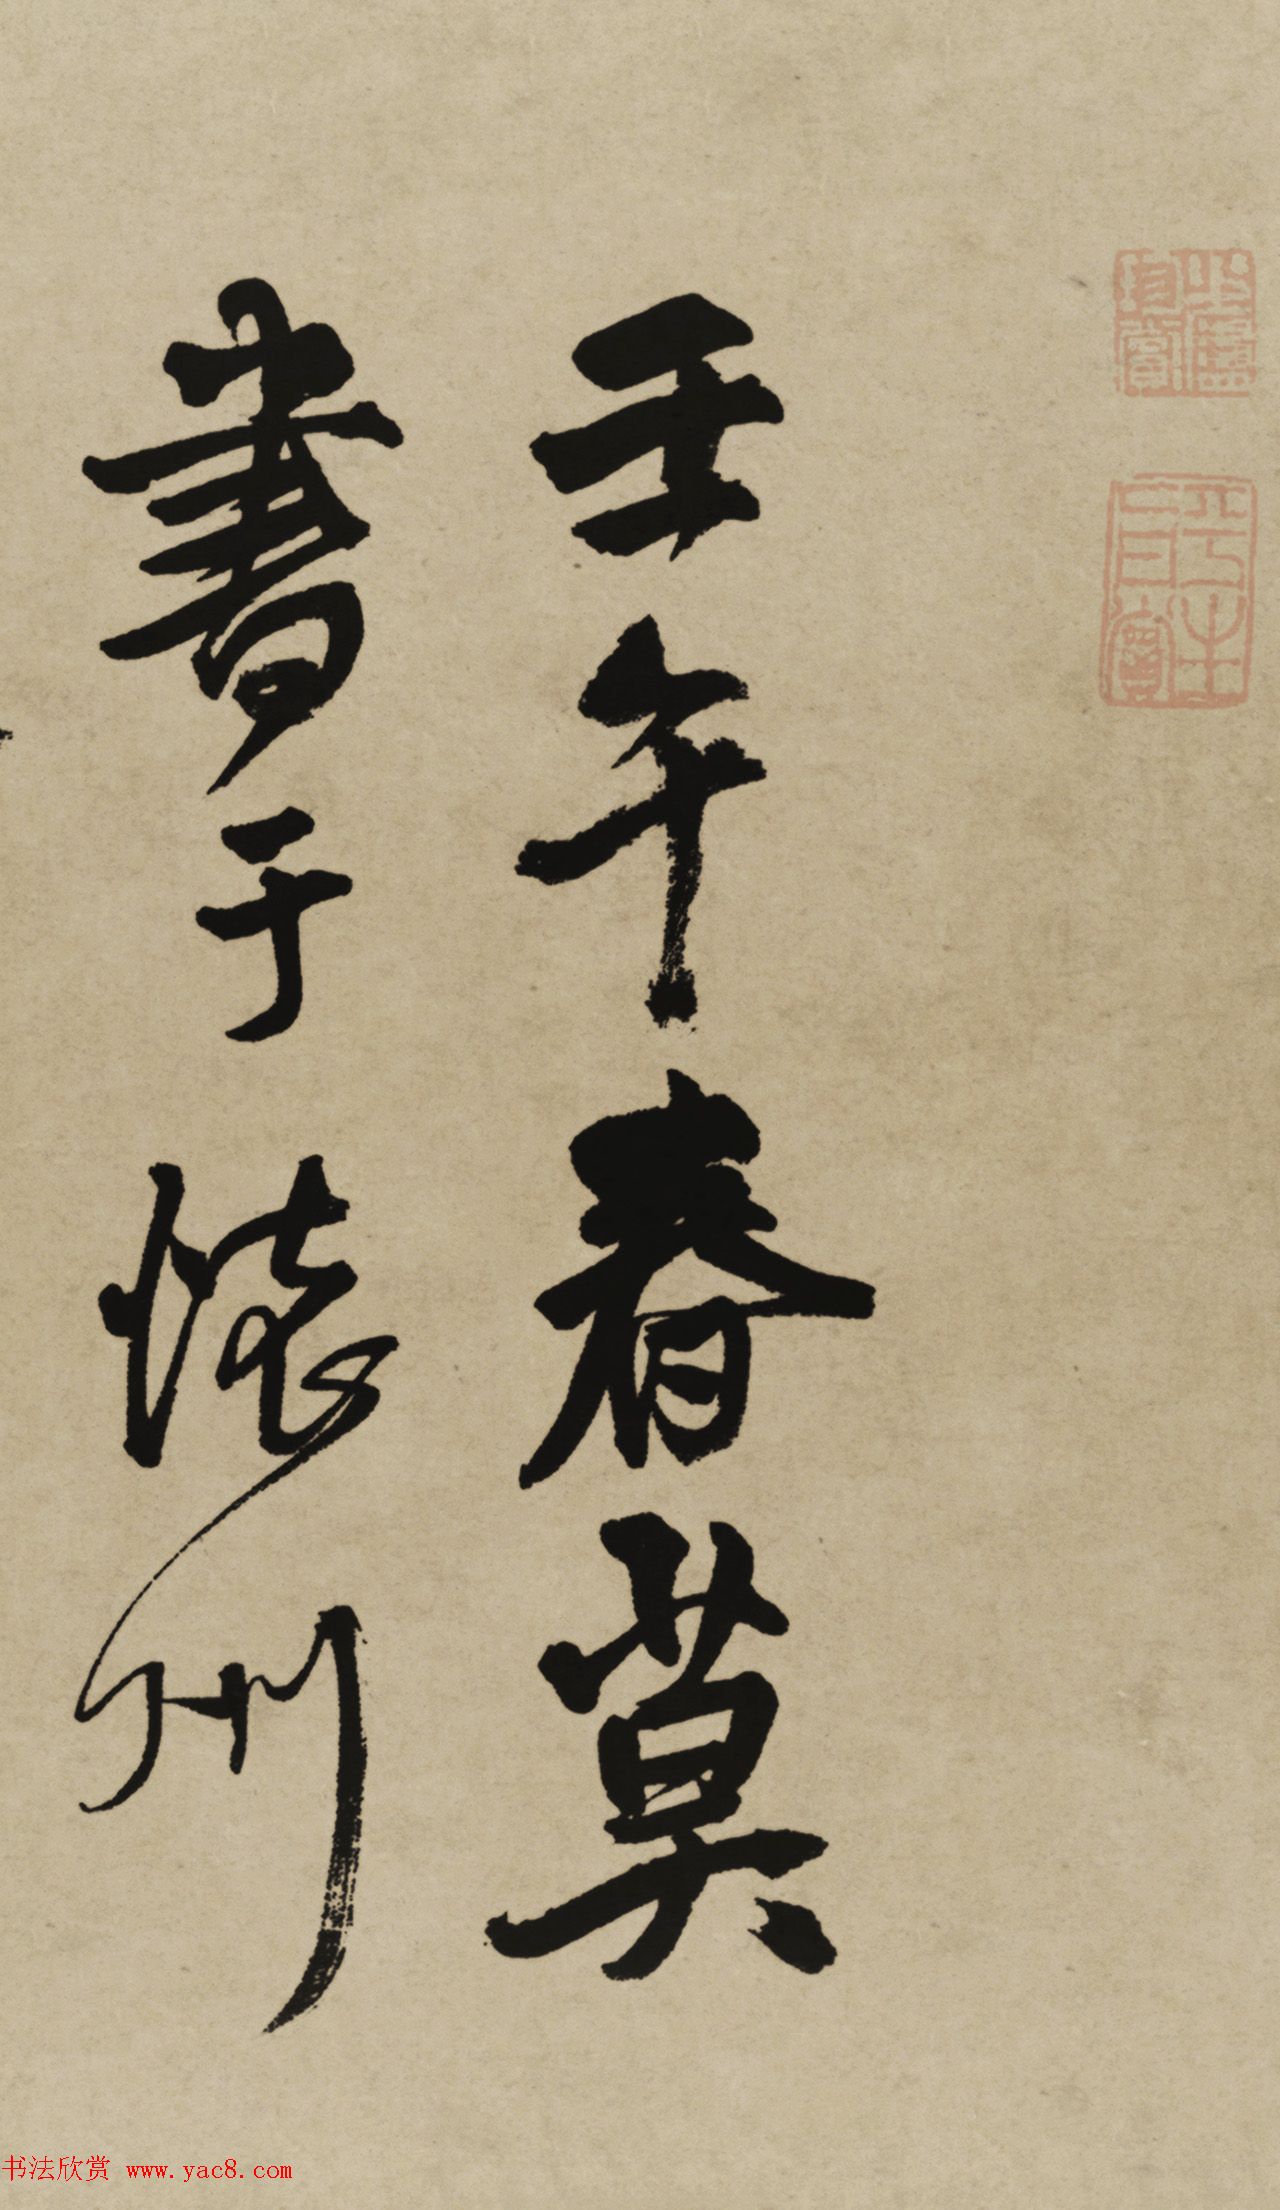 壬午春莫
書于懷州
书法欣赏 www.yac8.com